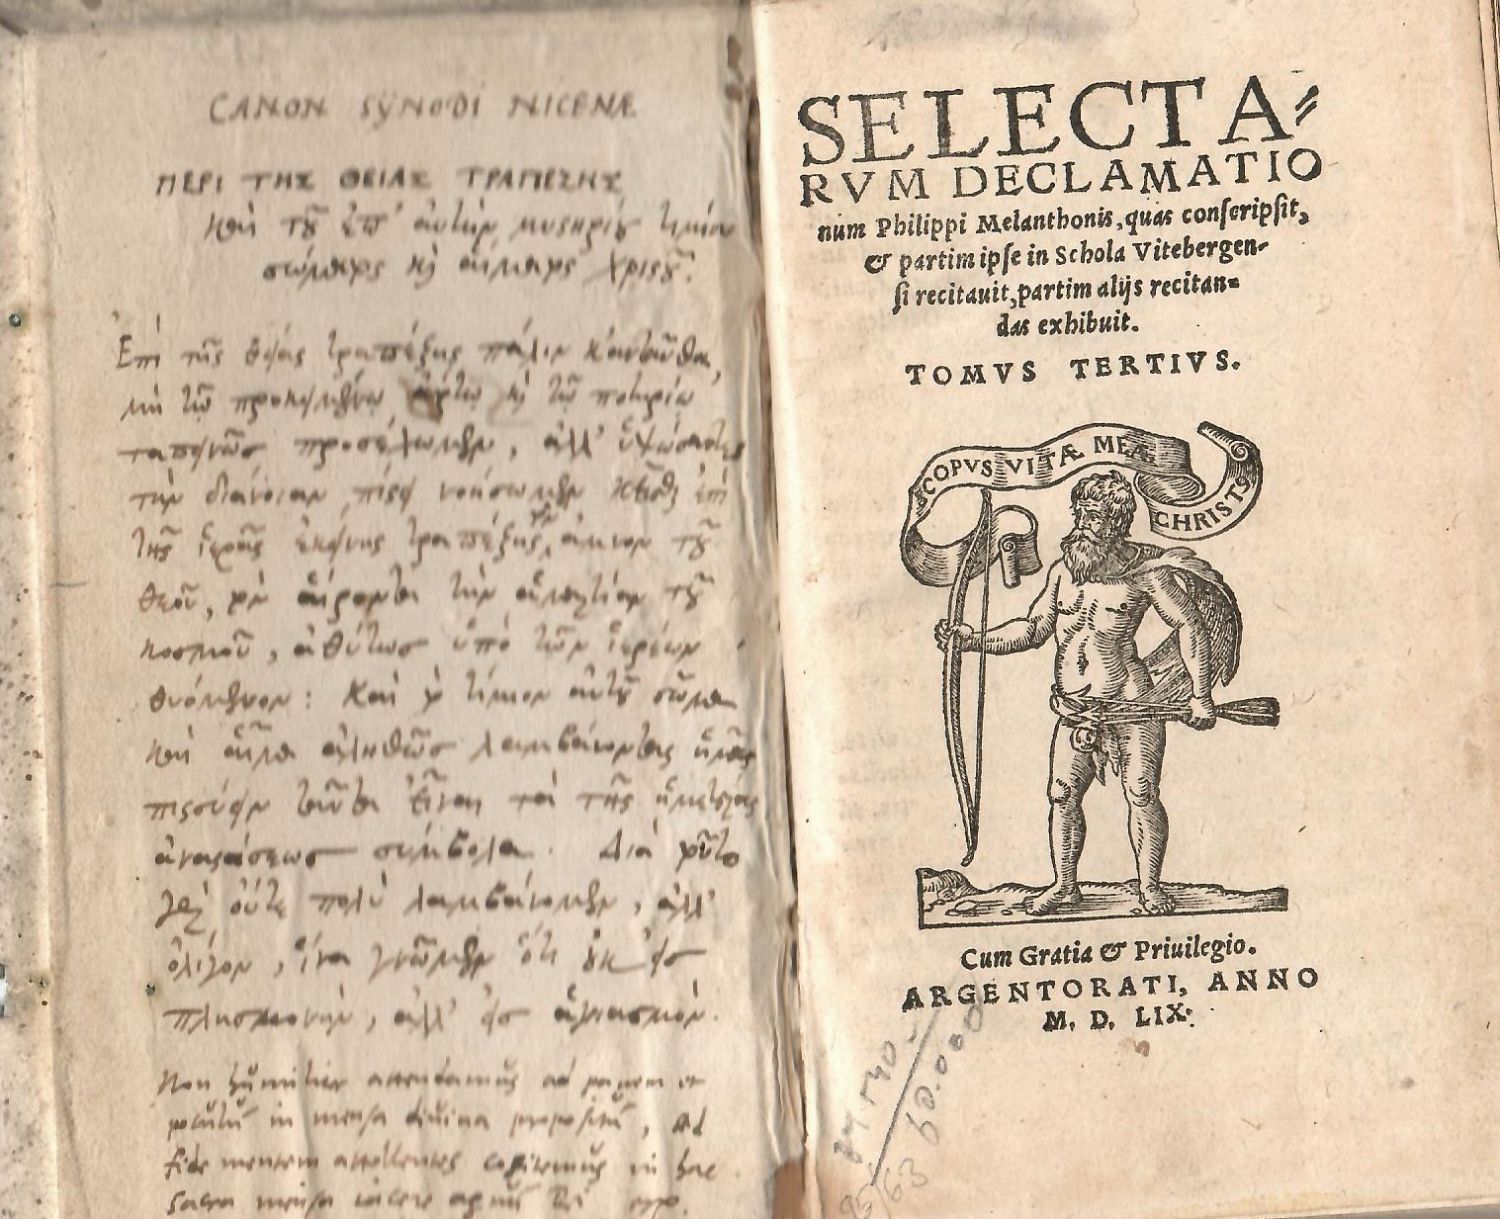 CANON SYNODI NICENÆ
ΠΕΡΙ ΤΗΣ ΘΕΙΑΣ ΤΡΑΠΕΣΗΣ
καὶ τοῦ ἐπ' αὐτὴν μυστηρίου τιμίου
σώματος καὶ αἵματος Χριστοῦ.
Ἐπὶ τῆς θείας τραπέζης πάλιν κἀνταῦθα,
μὴ τῷ προκειμένῳ ἄρτῳ καὶ τῷ ποτηρίῳ
ταπεινῶς προσέχωμεν, ἀλλ' ὑψώσαντες
τὴν διάνοιαν πίστει νοήσωμεν κεῖσθαι ἐπὶ
τῆς ἱερᾶς ἐκείνης τραπέζης τὸν ἀμνὸν τοῦ
θεοῦ, τὸν αἴροντα τὴν ἁμαρτίαν τοῦ
κοσμοῦ, ἀθύτως ὑπὸ τῶν ἱερέων
θυόμενον: Καὶ τὸ τίμιον αὐτοῦ σῶμα
καὶ αἷμα ἀληθῶς λαμβάνοντας ἡμᾶς
πιστεύειν ταῦτα εἶναι τὰ τῆς ἡμετέρας
ἀναστάσεως σύμβολα. Διὰ τοῦτο
γὰρ οὔτε πολὺ λαμβάνομεν, ἀλλ'
ὀλίγον, ἵνα γνῶμεν ὅτι οὐκ εἰς
πλησμονὴν, ἀλλ' εἰς ἁγιασμόν.
Non humiliter attendamus ad panem et
poculum in mensa divina propositum, sed
fide mentem attollentes cogitemus in hac
sacra mensa iacere agnum Dei
SELECTA-
RVM DECLAMATIO
num Philippi Melanthonis, quas conscripsit,
& partim ipse in Schola Vitebergen-
si recitauit, partim alijs recitan-
das exhibuit.
TOMVS TERTIVS.
SCOPVS VITÆ MEÆ
CHRISTVS
Cum Gratia & Priuilegio.
ARGENTORATI, ANNO
M. D. LIX.
60.000